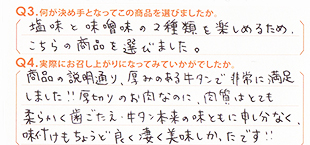 Q3.何が決め手となってこの商品を選びましたか。
塩味と味噌味の2種類を楽しめるため、
こちらの商品を選びました。
Q4.実際にお召し上がりになってみていかがでしたか。
商品の説明通り、厚みのある牛タンで非常に満足
しました!!厚切りのお肉なのに、肉質はとても
柔らかく歯ごたえ・牛タン本来の味ともに申し分なく、
味付けもちょうど良く凄く美味しかったです!!